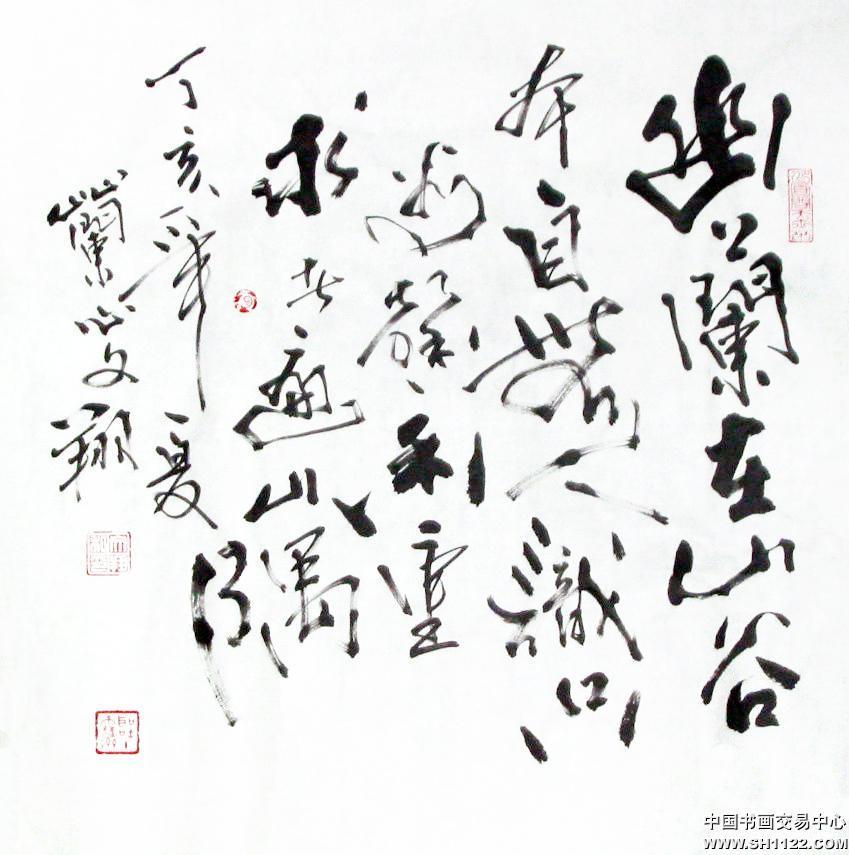 幽蘭在山谷
本自無人識只
為馨香重
求者遍山隅
丁亥年夏
蘭心文翔
中国书画交易中心
WWW.SH1122.COM